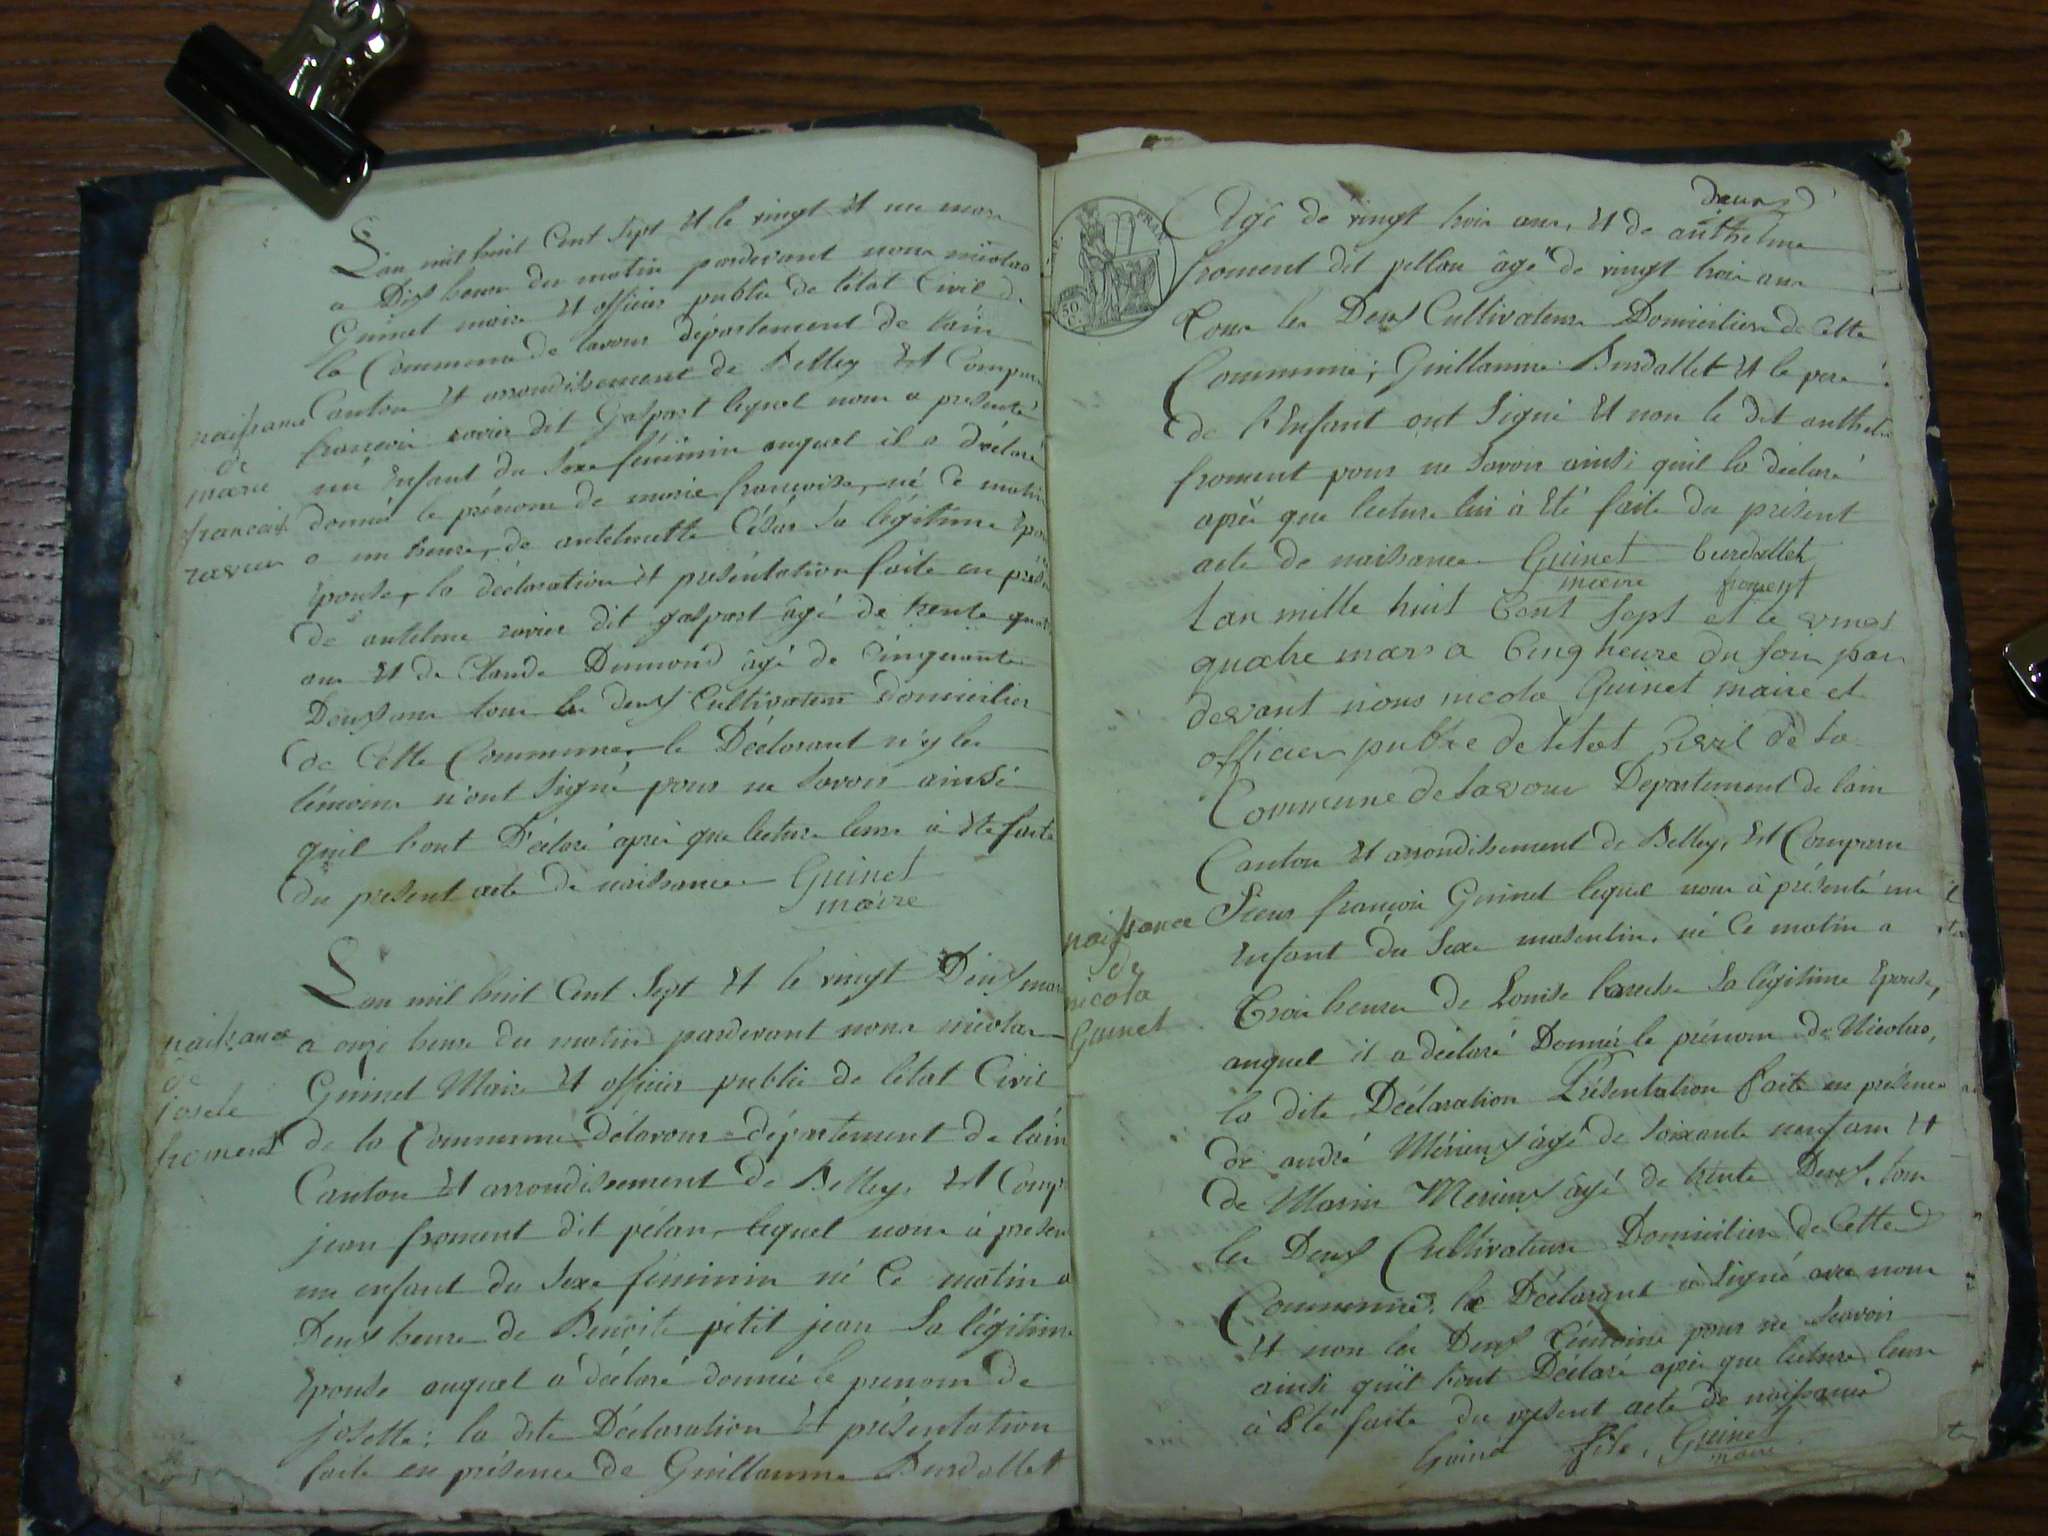 L'an mil huit Cent Sept Et le vingt Et un mars
a Dix heure du matin pardevant nous nicolas
Guinet maire Et officier public de l'état Civil de
la Commune de lavour département de l'ain
Canton Et arrondissement de Belley Est Comparu
françois ravier dit Gaspart lequel nous a presenté
un Enfant du Sexe féminin auquel il a déclaré
donner le prénom de marie françoise, né Ce matin
a un heure, de antelmette César Sa légitime
Epouse, la déclaration Et présentation faite en
de antelme ravier dit gaspart âgé de trente
ans Et de Claude Dumond âgé de Cinquante
Deux ans tous les deux Cultivateurs Domicilies
de Cette Commune, le Déclarant n'y les
témoins n'ont Signé pour ne Savoir ainsi
quil l'ont Déclaré après que lecture leur à Eté faite
du present acte de naissance Guinet
maire
naissance
de
marie
francoise
ravier
L'an mil huit Cent Sept Et le vingt Deux mars
a onze heure du matin pardevant nous nicolas
Guinet Maire Et officier public de l'état Civil
de la Commune Délavour département de l'ain
Canton Et arrondissement de Belley, Est Comp
jean froment dit pélan, lequel nous à presen
un enfant du Sexe féminin né Ce matin a
Deux heure de Benoite pétit jean Sa légitime
Epouse auquel à déclaré donner le prenom de
josette; la dite Déclaration Et présentation
faite en présence de Guillaume Burdallet
naissance
de
josete
froment
Agé de vingt trois ans, Et de anthelme
froment dit pellan âgé de vingt trois ans
Tous les Deux Cultivateurs Domicilies de Cette
Commune; Guillaume Burdallet Et le pere
de l'Enfant ont Signé Et non le dit anthel
froment pour ne Savoir ainsi quil la déclaré
après que lecture lui à Eté faite du présent
acte de naissance Guinet burdallet
maire froment
Lan mille huit Cent Sept et le vingt
quatre mars a Cinq heure du soir par
devant nous nicola Guinet maire et
officier publie de letat Civil de la
Commune de lavour Département de lain
Canton Et arrondissement de Belley, Est Comparu
Sieur françois Guinet lequel nous à présenté un
Enfant du Sexe masculin, né Ce matin a
Trois heures de Louise Sa légitime Epouse,
auquel il a déclaré Donner le prénom de Nicolas,
la dite Déclaration Présentation faite en présence
de andré Mérieux âgé de Soixante neuf ans Et
de Marin Mérieux âgé de trente Deux, tous
les Deux Cultivateurs Domicilies de Cette
Commune, le Déclarant à Signé avec nous
Et non les Deux témoins pour ne Scavoir
ainsi quil l'ont Déclaré après que lecture leur
à Eté faite du présent acte de naissance
Guinet fils, Guinet
maire
naissance
de
nicola
Guinet